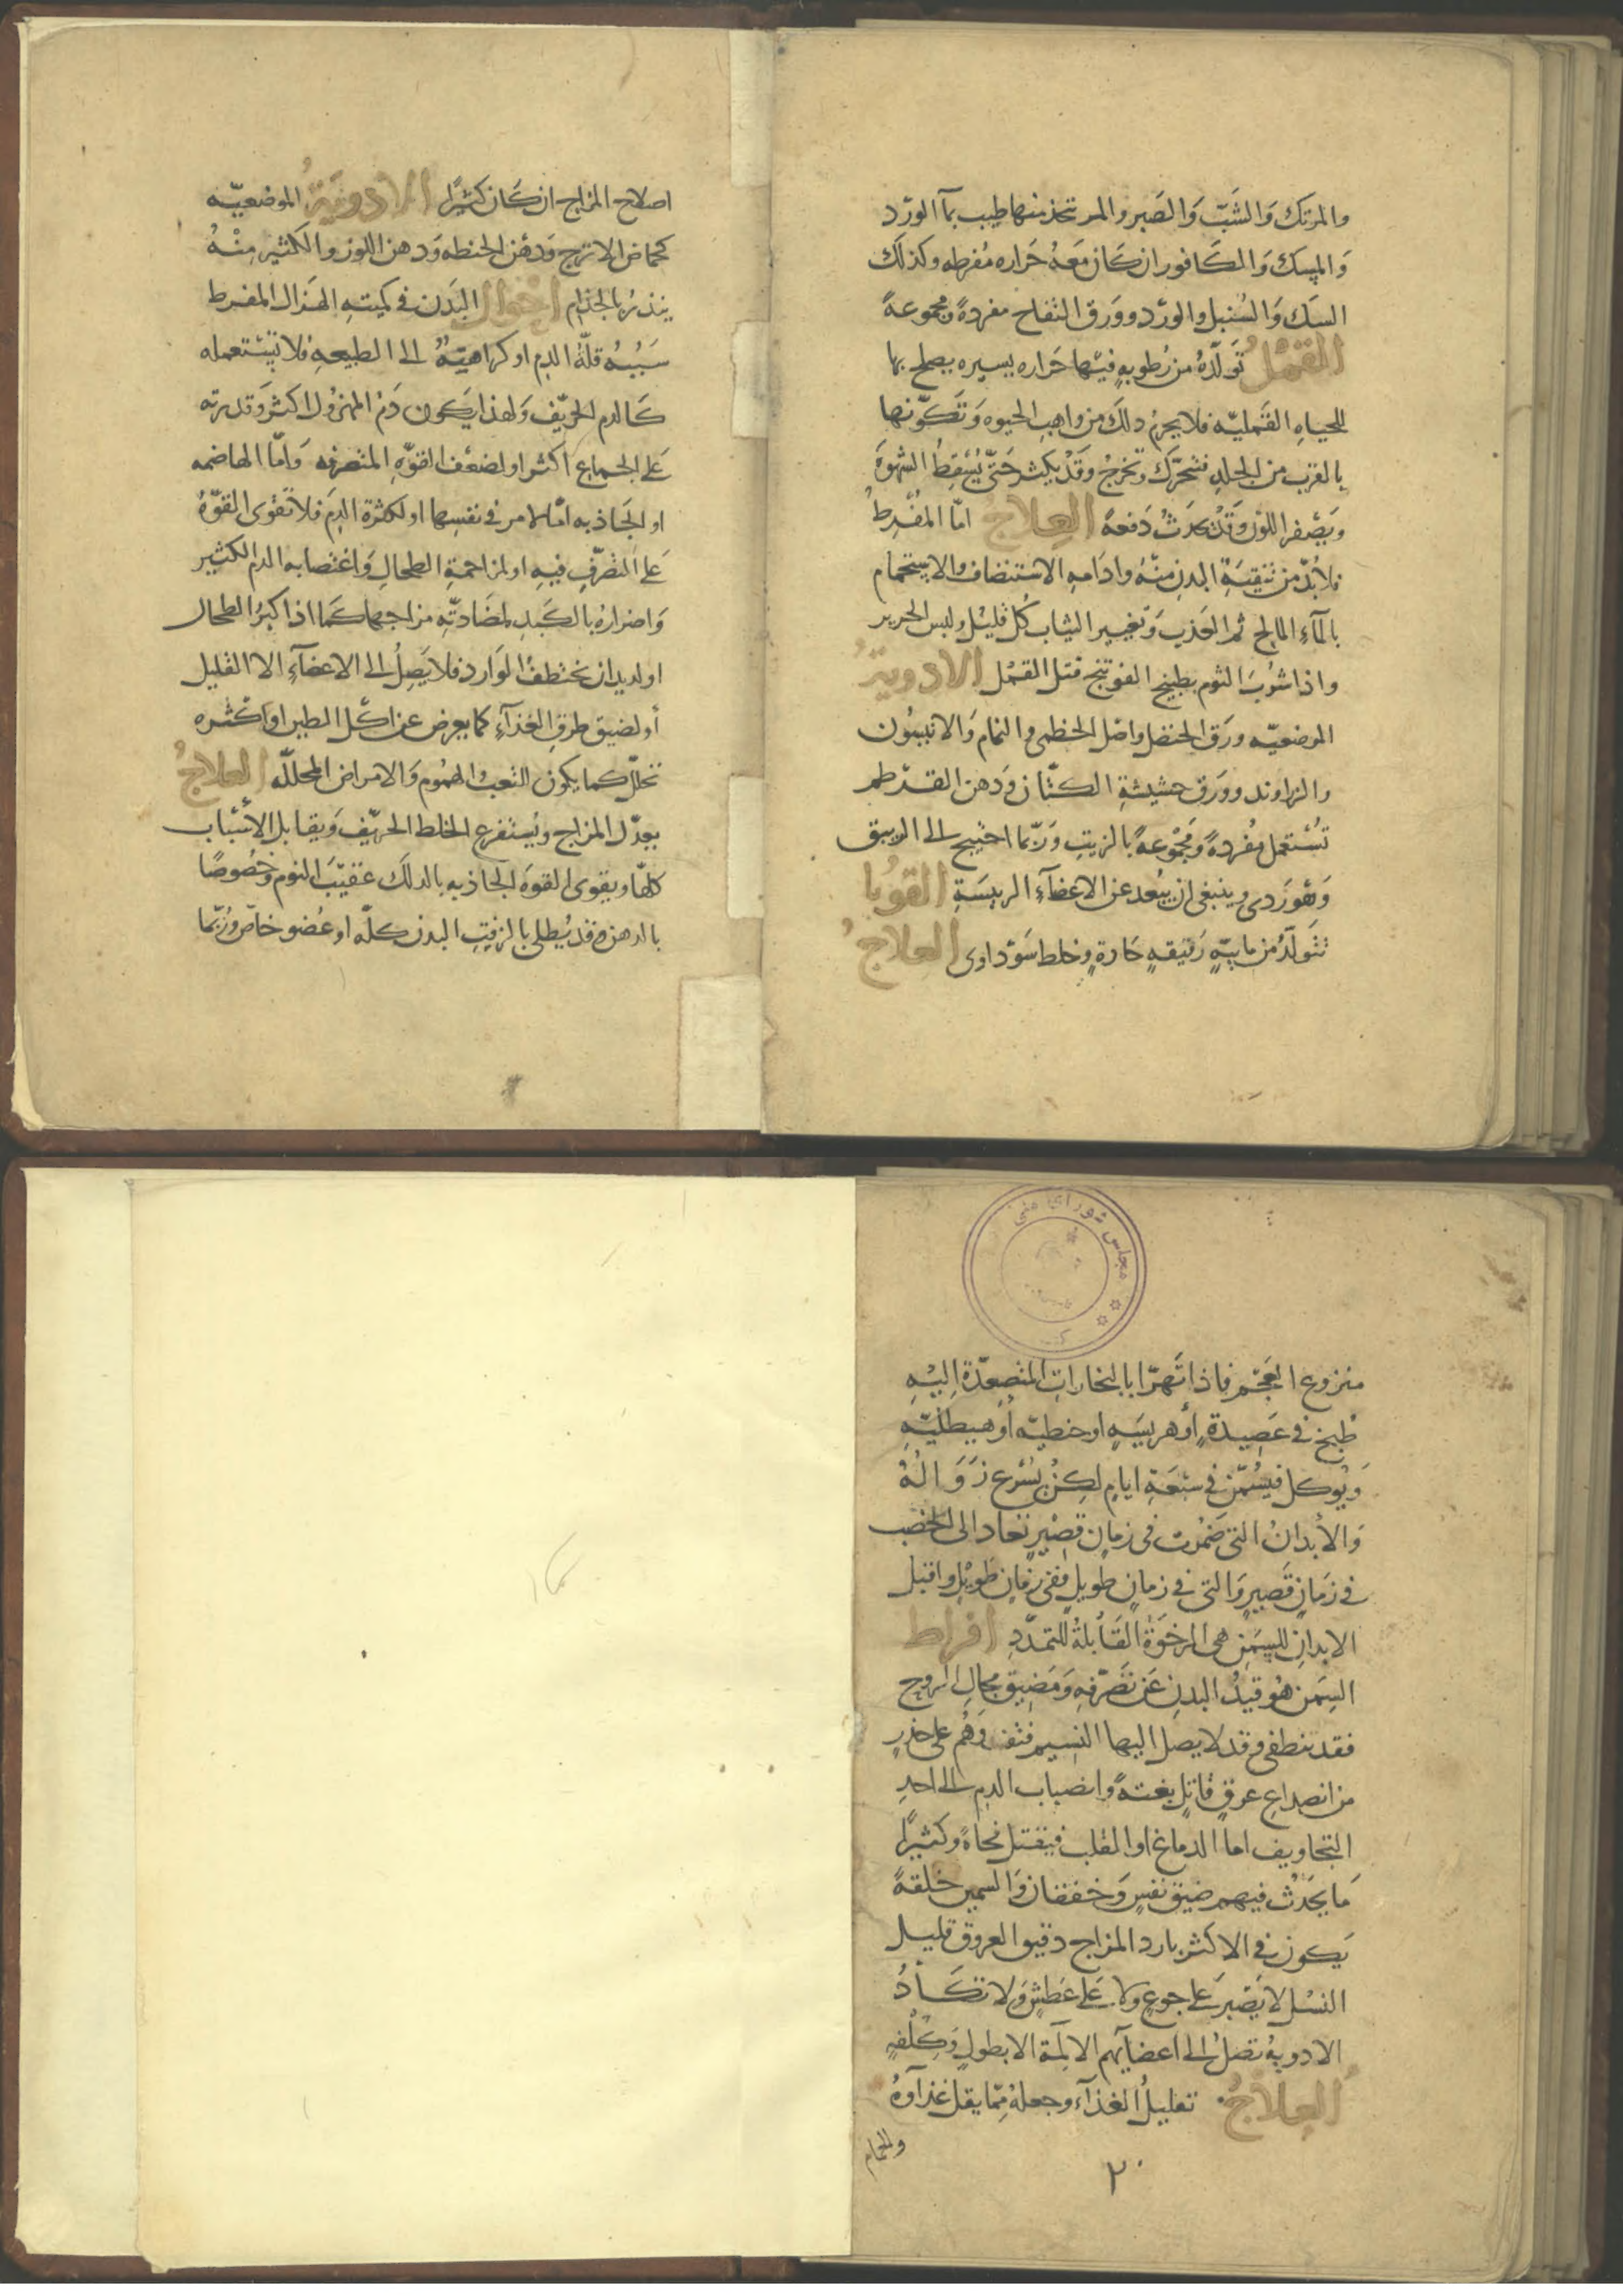 والمرتك وَالشبّ وَالصَبر والمر تتخذ منها طيب بمآ الورد
وَالمِسك وَالكَافور ان كَان مَعَهُ حَراره مُفرطه وكذلك
السَك وَالسُنبل والورد وورَق التفاح مفردةً ومجموعةً
القمْل تَولّدُهُ من رُطوبهٍ فيهَا حَراره يسيره يصلح بها
للحياهِ القَمليّه فلا يحرمُ ذلكَ من واهبِ الحيوه وَتكوّنها
بالقربِ من الجلدِ فتتحرّك وتخرجُ وقَدْ يكثر حَتّى يُسْقطُ الشهوَة
وَيَصفر اللوْن وقَدْ يحدثُ دَفعةً العلاج امّا المُفْرطُ
فلابُدّ من تنقيَةِ البدنِ منهُ وادَامهِ الاستنضاف والاستحمام
بالمآءِ المالح ثم العَذب وَتغيير الثياب كُلّ قليْل ولبس الحرير
واذا شُرب الثوم بطبيخ الفوتنج قتل القمْل الادويَةُ
الموضعيّه ورَق الحنضل واصْل الخطمى والنمام وَالانيسُون
والزراوند وورَق حشيشةِ الكتّان وَدهن القرطم
تُستعمل مُفردةً وَمجْموعةً بالزيتِ وَرُبّما احتيج الى الزيبق
وَهوَ رَدى وينبغى ان يبُعد عن الاعضآءِ الرييسَةِ القوُبا
تتولّدُ من مايِيّهٍ رَقيقهٍ حَادةٍ وخلط سَوْداوى العلاجُ
اصلاح المزاج ان كَان كثيرًا الادويَةُ الموضعيّه
كحماض الاترج وَدهْن الحنطه وَدهن اللوز والكثير مِنْهُ
ينذرُ بالجذام احْوال البَدن فى كميتهِ الهَزال المفرط
سَببُه قلّةُ الدم او كراهيّةٌ الى الطبيعهِ فلا تَسْتعمله
كَالدم الحرّيف وَلهذا يَكون دَمُ المهزُول اكثر وَقدرته
عَلى الجماع اكثر او لضعْف القوّهِ المتصرفه وَامّا الهاضمه
او الجَاذبه امّا لامر فى نفسِها او لكثرة الدَم فلا تقْوى القوّةُ
عَلى التصَرّفِ فيهِ او لمزاحمةِ الطحالِ وَاغتصابه الدم الكثير
وَاضرارهُ بالكَبدِ لمضَادتّهِ مزاجها كمَا اذا كبرُ الطحال
او لديدان تختطفُ الوَارد فلا يَصِلُ الى الاعضآءِ الا القليل
أو لضيق طرقِ الغذآءِ كما يعرض عن اكْل الطين او اكثره
تحلّل كما يكون التعب والهمُوم وَالامراض المحللّه العلاجُ
يعدّل المزاج وَيُستفرع الخلط الحرّيف وَيقابل الأسْبَاب
كلّها ويقوى القوة الجاذبه بالدلَك عقيْبَ النوم وخصُوصًا
بالدهن وقد يُطلى بالزفتِ البدن كلّه او عُضو خاصّ وَرُبّما
مجلس شوراى ملى
منزوع العَجَم فاذا تهَرّا بالبخاراتِ المتصعّدة اِليْهِ
طْبخ فى عَصِيدةٍ أو هريسَهٍ او حنطيّه أو هيطليّهٍ
وَيُوكل فيسُمّن فى سبْعَةِ ايامٍ لكِنْ يُسْرع زَوَالُهُ
وَالأبدانُ التى ضمُرت فى زمانٍ قصِيْرٍ تعاد الى الخصْب
فى زَمَانٍ قصِيرٍ وَالتى فى زمانٍ طويلٍ ففى زمَانٍ طَويْلٍ واقبل
الابدانِ للسِمَنِ هى الرخوَةُ القَابلةُ للتمدّدِ افراط
السِمَن هُو قيدُ البدنِ عَن تصَرّفهِ وَمَضيق مجال الروح
فقد تنطفى وقد لا يصل اليها النسِيم فتفسد وَهُم على خذرٍ
من انصداعِ عرقٍ قاتلٍ بغتةً وانصباب الدم الى احدِ
التجاويف اما الدماغ او القلب فيقتل فجاةً وكثيرًا
مَا يحَدثُ فيهم ضيق نفسٍ وَخفقان وَالسمين خلقةً
يَكون فى الاكثر بارد المزاج دقيق العروق قليل
النسْل لا يَصْبر عَلى جوعٍ ولا عَلى عَطشٍ وَلا تكَادُ
الادويهُ تصلُ الى اعضآيهم الالمة الا بطولٍ وَكلْفهٍ
العلاجُ تقليلُ الغذآءِ وجعلهُ ممّا يقل غذآوهُ
والحمام
٢٠